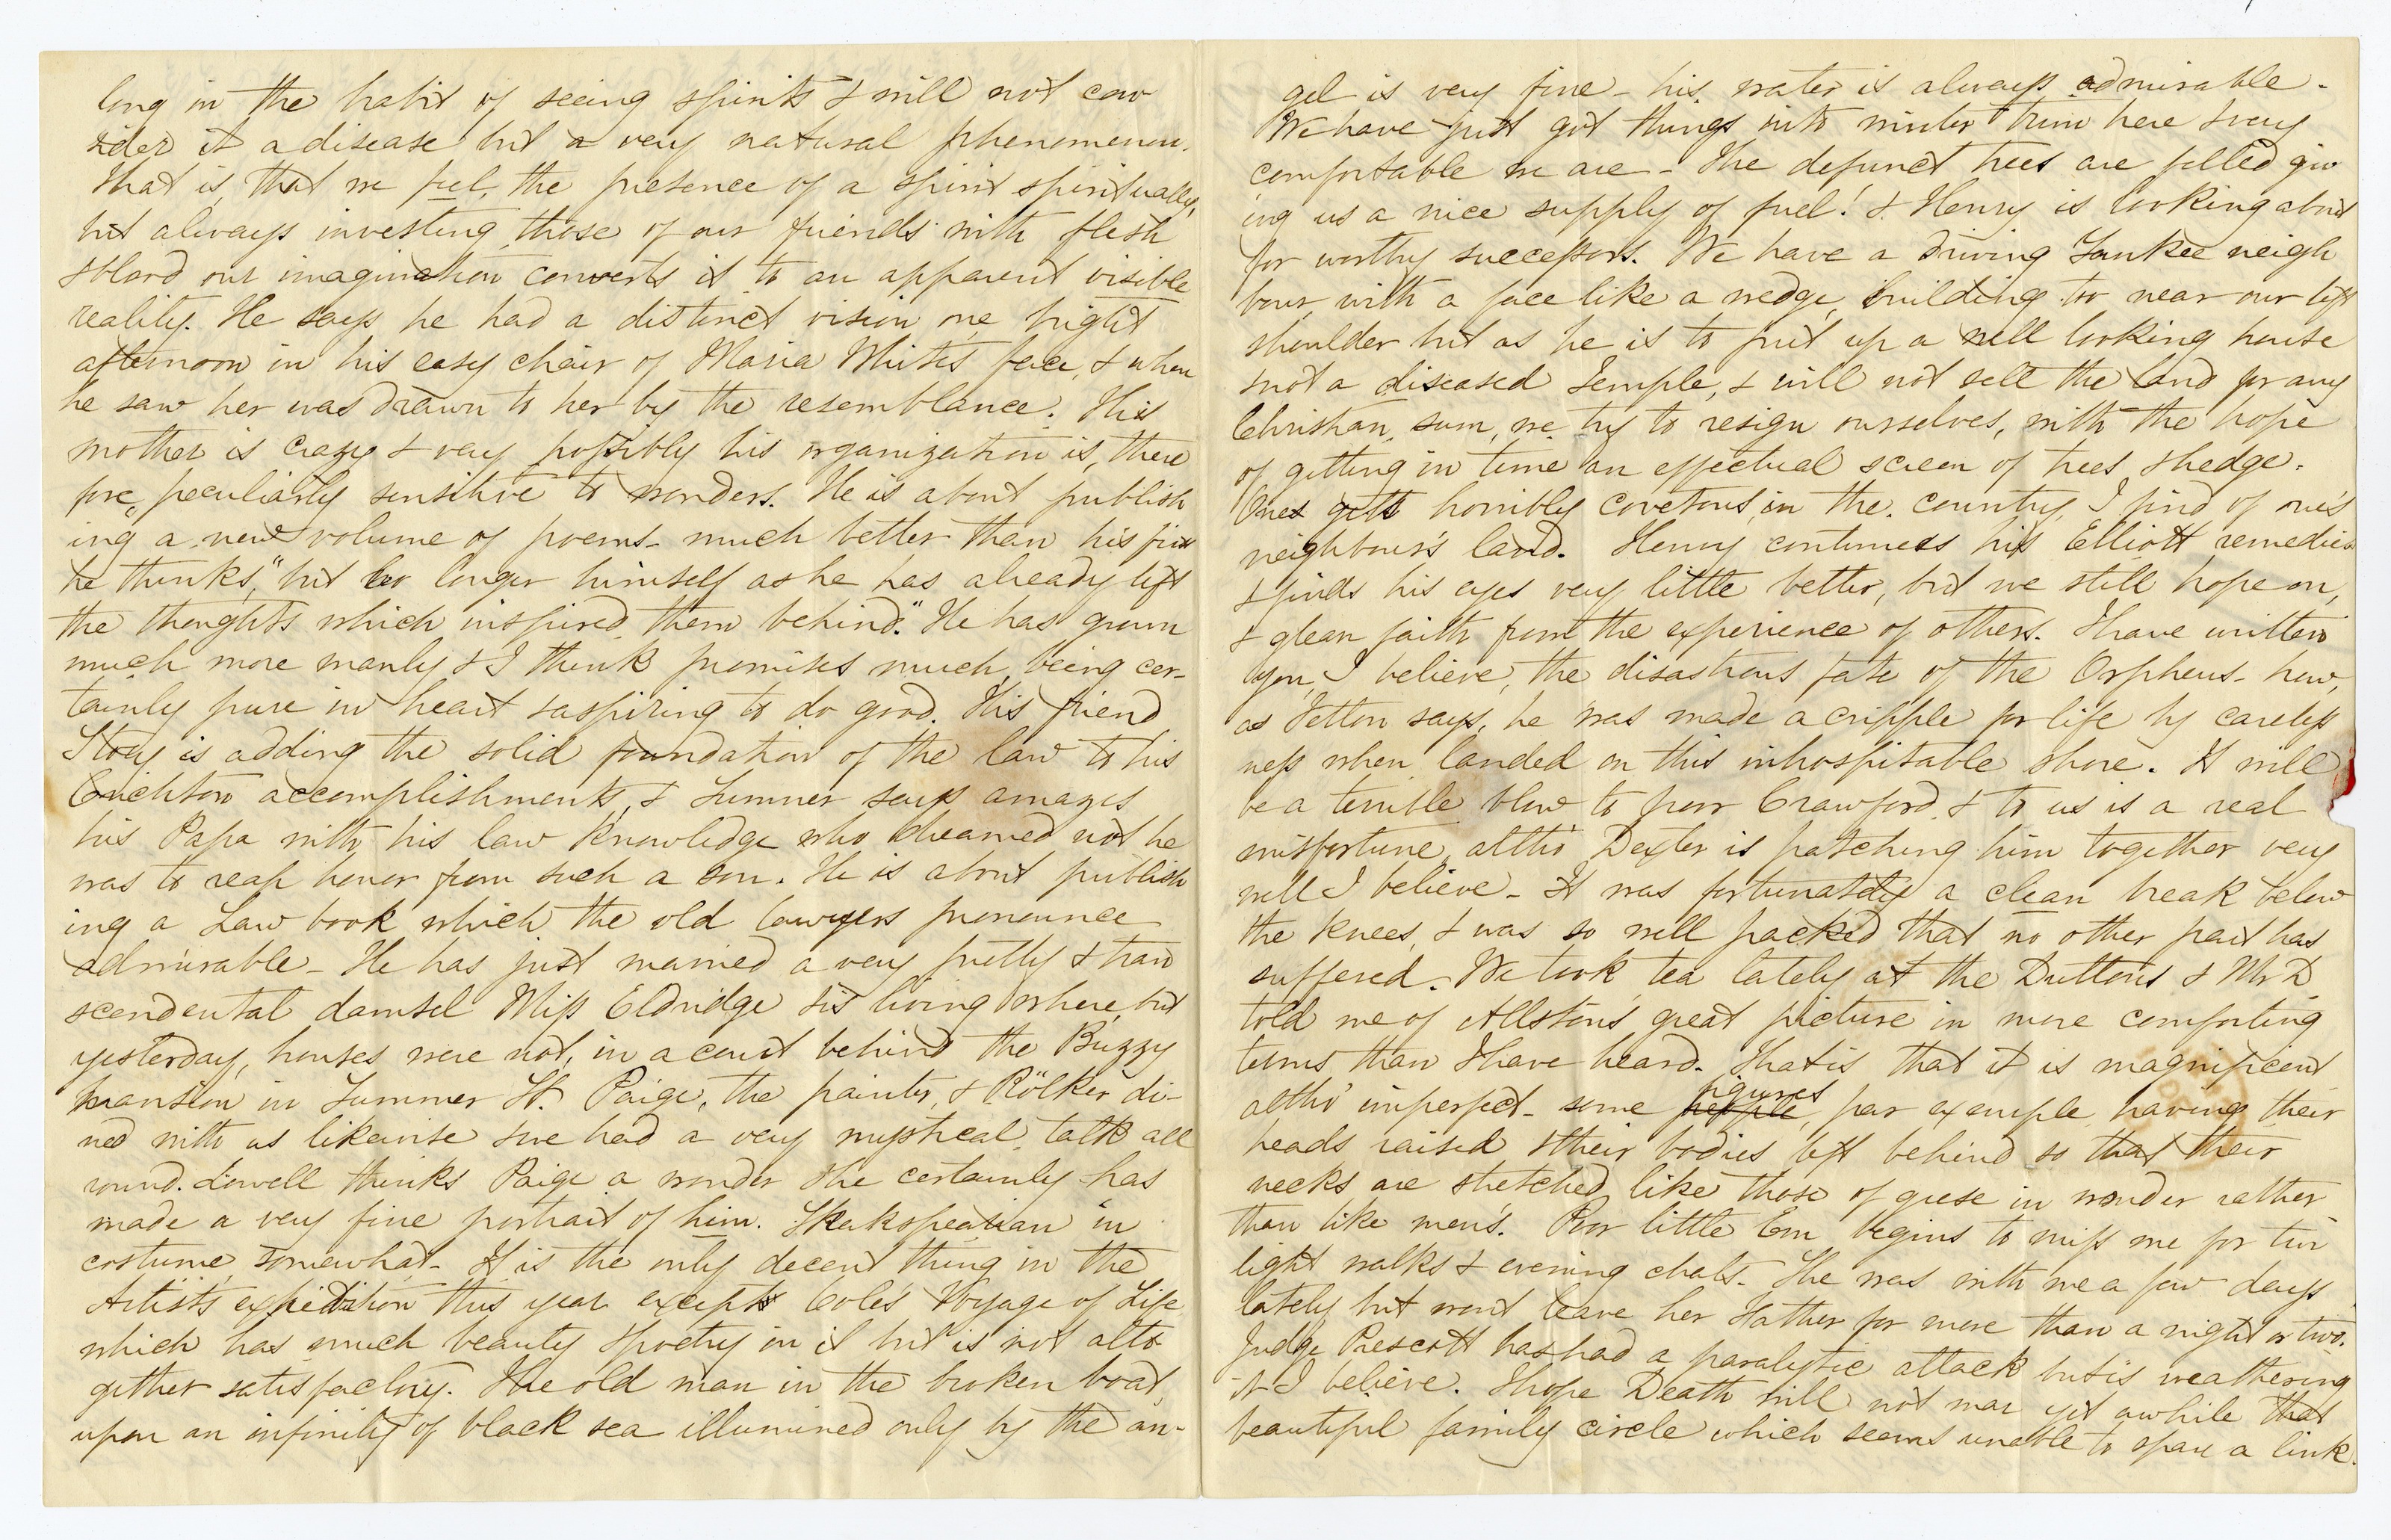 long in the habit of seeing spirits & will not con
sider it a disease but a very natural phenomenon.
That is, that we feel, the presence of a spirit spiritually,
but always investing those of our friends with flesh
& blood our imagination converts it to an apparent visible
reality. He says he had a distinct vision one bright
afternoon in his easy chair of Maria White's face, & when
he saw her was drawn to her by the resemblance. His
mother is crazy & very possibly his organization is, there
fore, peculiarly sensitive to wonders. He is about publish
ing a new volume of poems - much better than his first
he thinks, "but no longer himself as he has already left
the thoughts which inspired them behind." He has grown
much more manly & I think promises much, being cer-
tainly pure in heart & aspiring to do good. His friend
Story is adding the solid foundation of the law to his
Crichton accomplishments, & Sumner says amazes
his Papa with his law knowledge who dreamed not he
was to reap honor from such a son. He is about publish
ing a Law book which the old lawyers pronounce
admirable - He has just married a very pretty & tran
scendental damsel Miss Eldridge & is living where, but
yesterday, houses were not, in a court behind the Buzzy
mansion in Summer St. Paige, the painter, & Rölker di-
ned with us likewise & we had a very mystical talk all
round. Lowell thinks Paige a wonder & he certainly has
made a very fine portrait of him. Shakspearian in
costume, somewhat - It is the only decent thing in the
Artist's expedition this year except Cole's Voyage of Life
which has much beauty & poetry in it but is not alto
gether satisfactory. The old man in the broken boat,
upon an infinity of black sea illumined only by the an-
gel is very fine - his water is always admirable.
We have just got things into winter trim here & very
comfortable we are - The defunct trees are felled giv
ing us a nice supply of fuel! & Henry is looking about
for worthy successors. We have a driving Yankee neigh
bour, with a face like a wedge, building too near our left
shoulder but as he is to put up a well looking house
& not a diseased Temple, & will not sell the land for any
Christian sum, we try to resign ourselves, with the hope
of getting in time an effectual screen of trees & hedge.
One gets horribly covetous, in the country, I find of one's
neighbour's land. Henry continues his Elliott remedies
& finds his eyes very little better, but we still hope on,
& glean faith from the experience of others. I have written
you, I believe, the disastrous fate of the Orpheus - how,
as Felton says, he was made a cripple for life by careless
ness when landed on this inhospitable shore. It will
be a terrible blow to poor Crawford & to us is a real
misfortune, altho' Dexter is patching him together very
well I believe - It was fortunately a clean break below
the knees, & was so well packed that no other part has
suffered. We took tea lately at the Duttons & Mr D
told me of Allston's great picture in more comforting
terms than I have heard. That is that it is magnificent
altho' imperfect - some people figures, par exemple, having their
heads raised & their bodies left behind so that their
necks are stretched like those of geese in wonder rather
than like men's. Poor little Em begins to miss me for twi
light walks & evening chats. She was with me a few days
lately but wont leave her Father for more than a night or two.
Judge Prescott has had a paralytic attack but is weathering
it I believe. I hope Death will not mar yet awhile that
beautiful family circle which seems unable to spare a link.